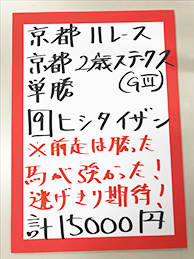 京都11レース
京都2歳ステークス
単勝 (GⅢ)
9 ヒシタイザン
※前走は勝った
馬が強かった!
逃げきり期待!
計15000円